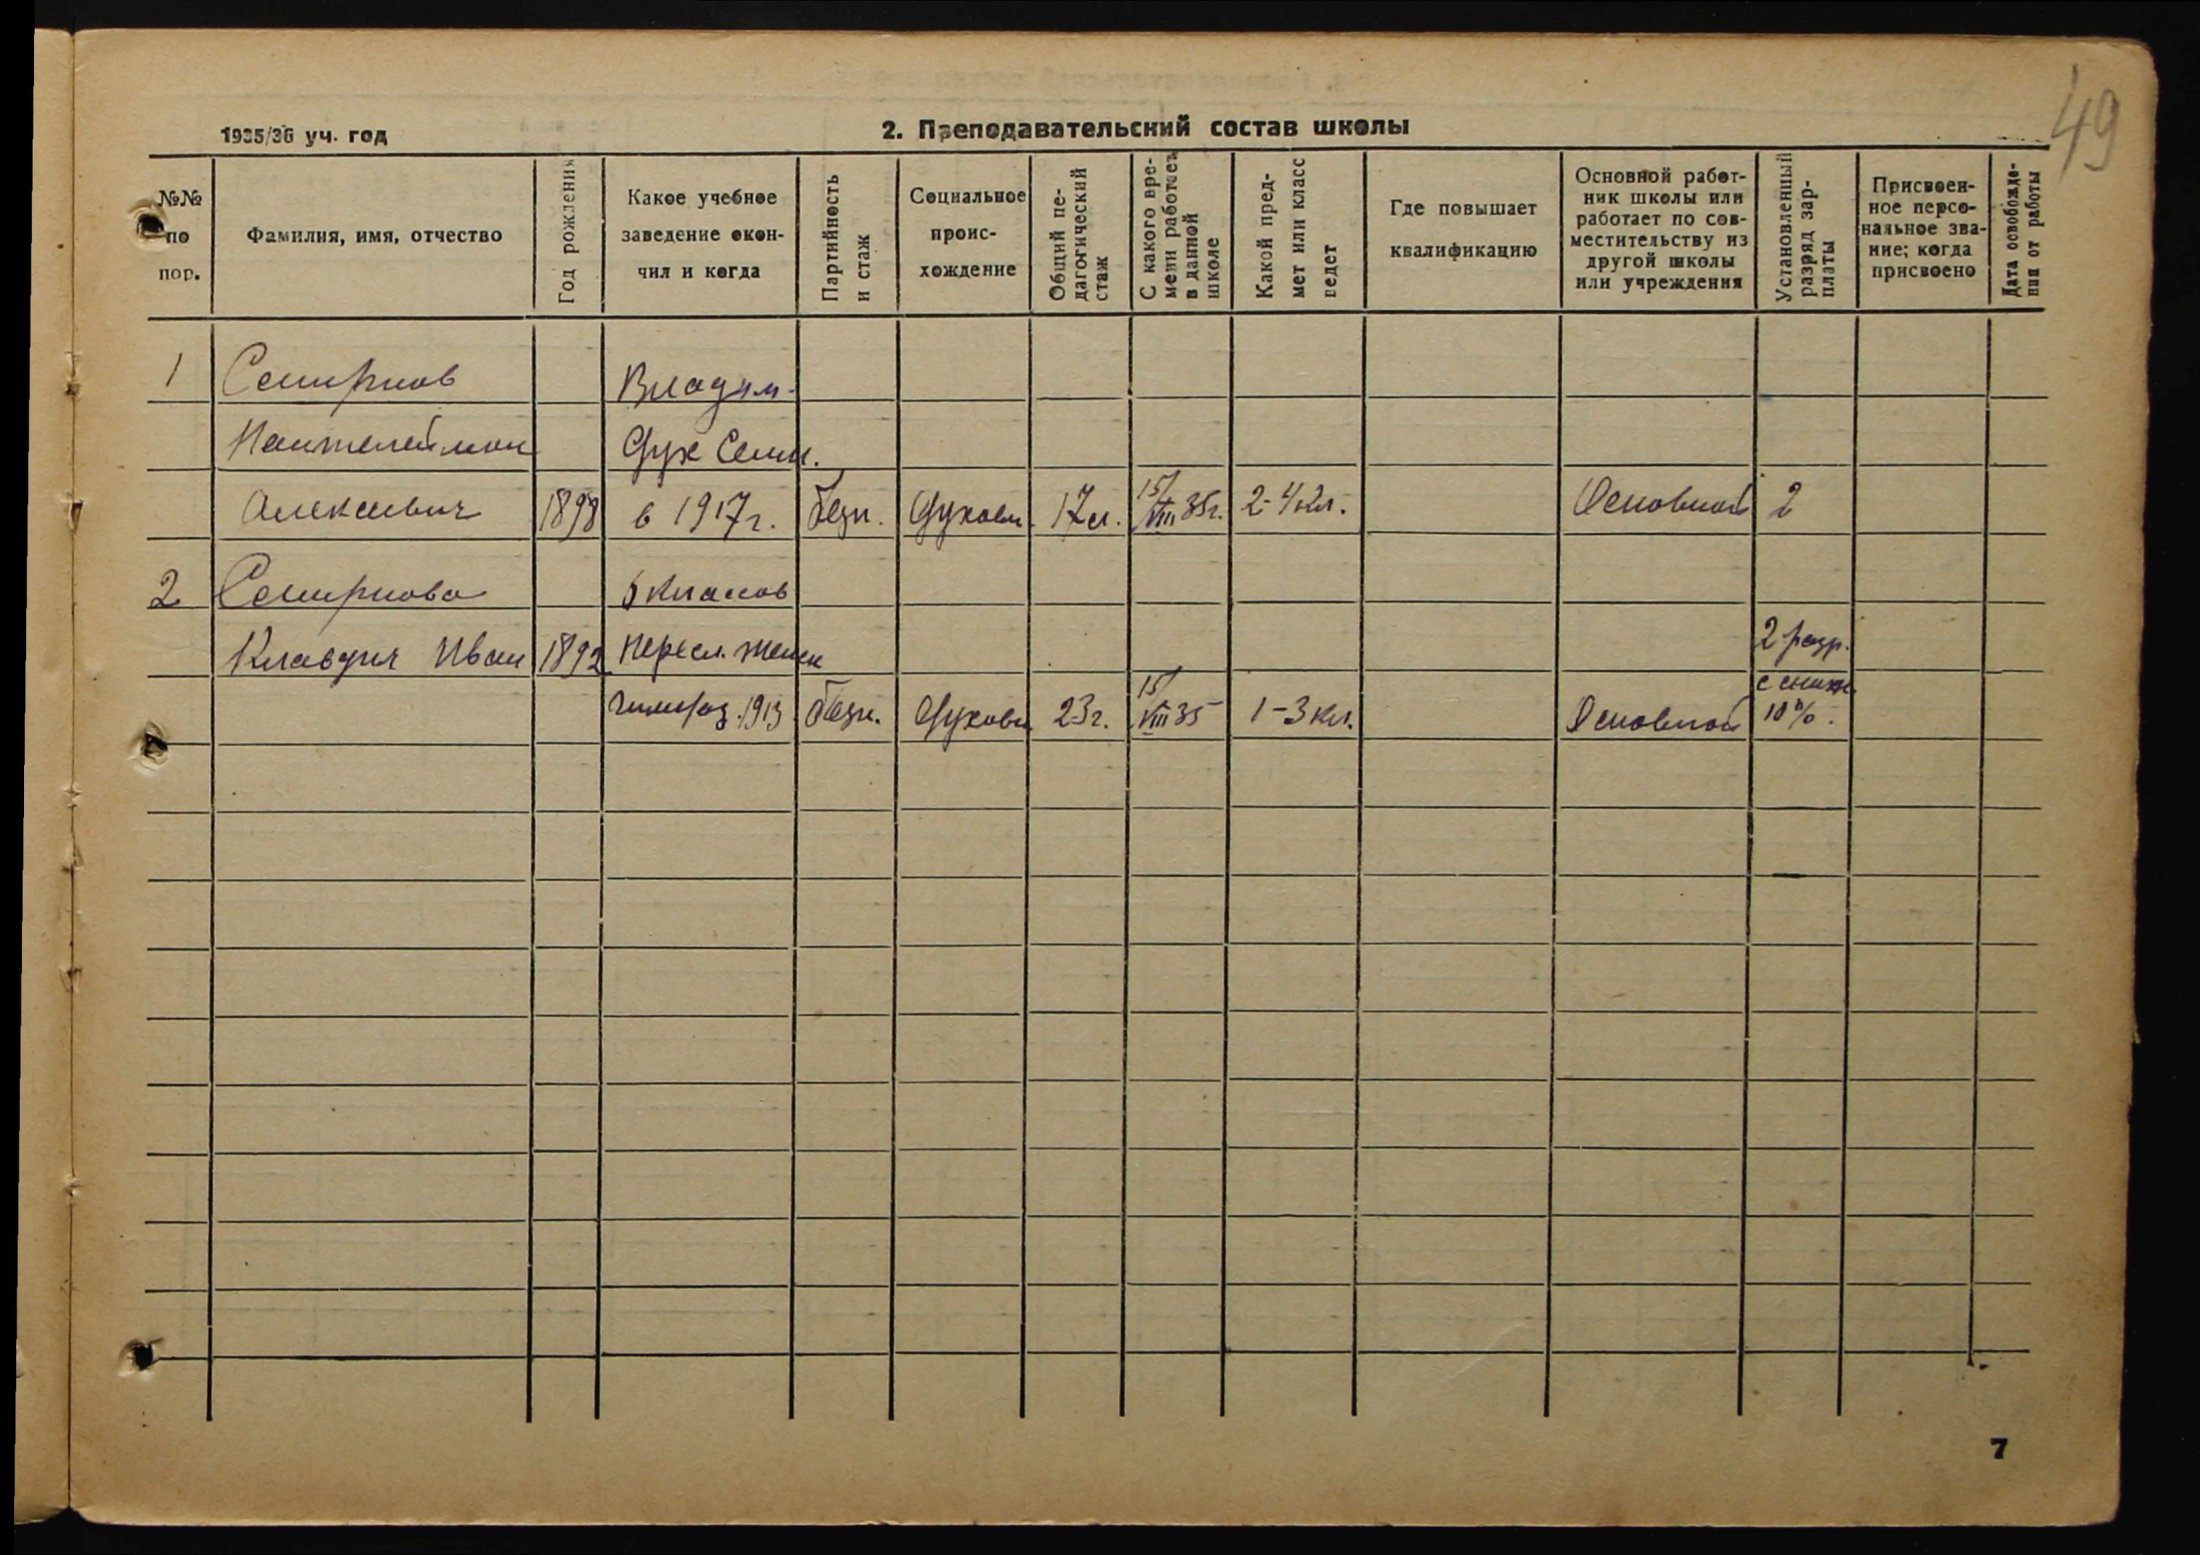 49
1935/36 уч. год
2. Преподавательский состав школы
№№ по пор.
Фамилия, имя, отчество
Год рождения
Какое учебное заведение окончил и когда
Партийность и стаж
Социальное происхождение
Общий педагогический стаж
С какого времени работает в данной школе
Какой предмет или класс ведет
Где повышает квалификацию
Основной работник школы или работает по совместительству из другой школы или учреждения
Установленный разряд зарплаты
Присвоенное персональное звание; когда присвоено
Дата освобождения от работы
1 Смирнов Владим.
Пантелеймон Дух Семин.
Алексеевич 1898 в 1917 г. безп. Духовн. 17 л. 15/VIII 35 г. 2-4 кл. Основной 2
2 Смирнова классов
Клавдия Иван 1892 Пересл. Женск 2 разр.
гимназ. 1913 безп. Духовн 23 г. 15/VIII 35 1-3 кл. Основной с сниж. 10%.
7